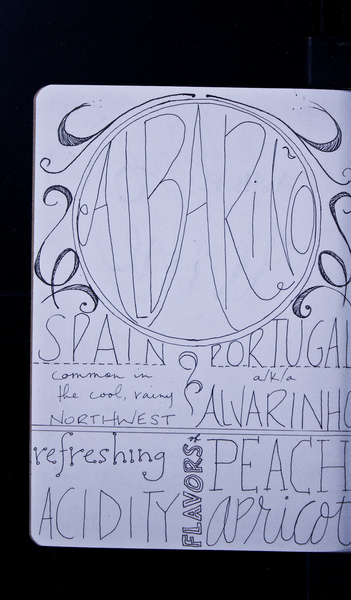 ALBARiÑO
SPAIN
common in
the cool, rainy
NORTHWEST
PORTUGAL
a/k/a
ALVARINHO
refreshing
ACIDITY
FLAVORS of
PEACH
apricot